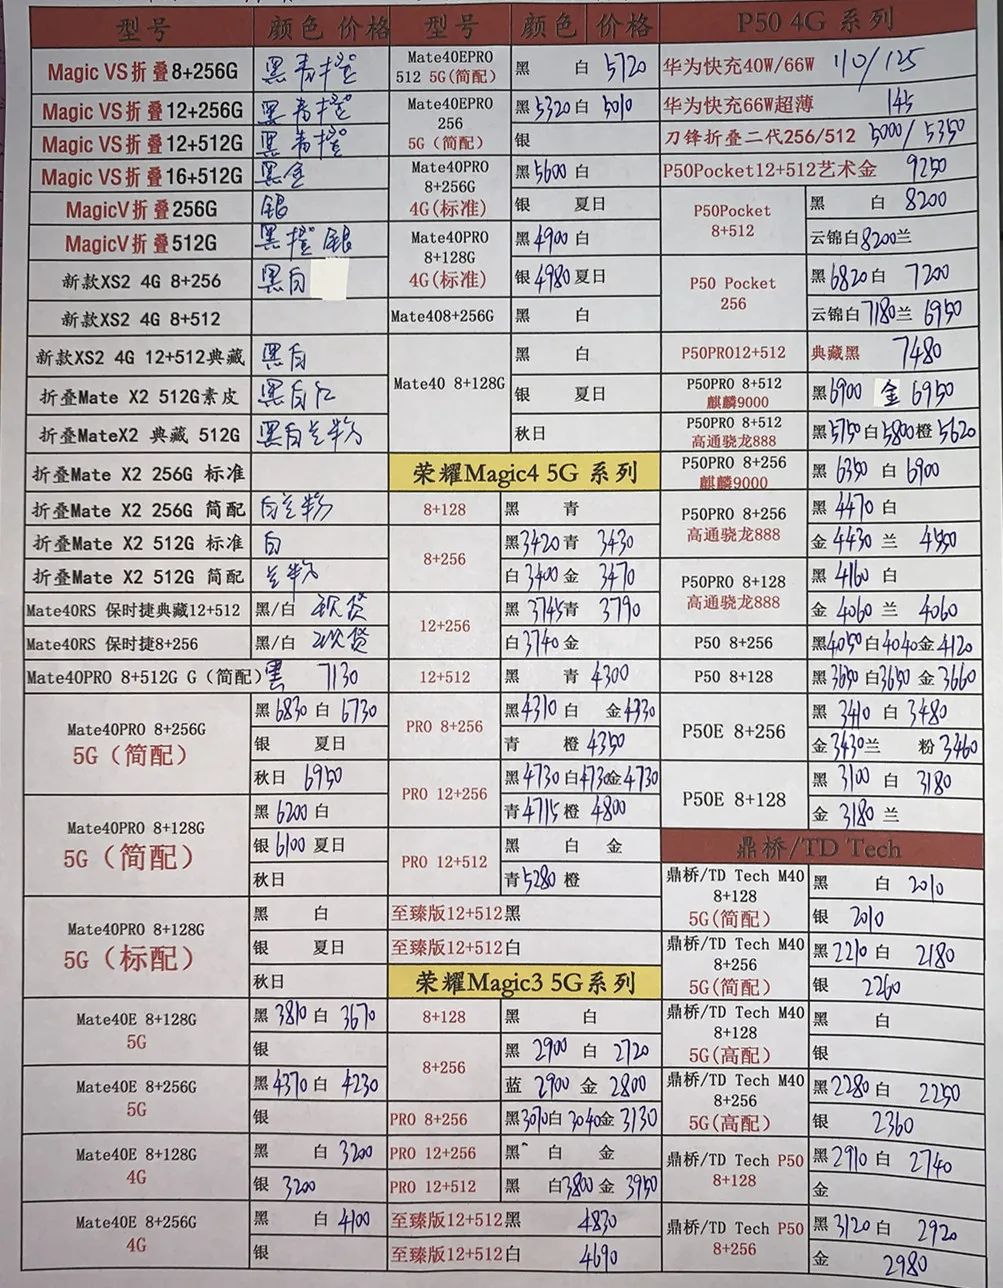 型号 颜色 价格
Magic VS折叠8+256G 黑 青 橙
Magic VS折叠12+256G 黑 青 橙
Magic VS折叠12+512G 黑 青 橙
Magic VS折叠16+512G 黑金
MagicV折叠256G 银
MagicV折叠512G 黑 橙 银
新款XS2 4G 8+256 黑白
新款XS2 4G 8+512
新款XS2 4G 12+512典藏 黑白
折叠Mate X2 512G素皮 黑白红
折叠MateX2 典藏 512G 黑白兰粉
折叠Mate X2 256G 标准
折叠Mate X2 256G 简配 白兰粉
折叠Mate X2 512G 标准 白
折叠Mate X2 512G 简配 兰粉
Mate40RS 保时捷典藏12+512 黑/白 现货
Mate40RS 保时捷8+256 黑/白 现货
Mate40PRO 8+512G G（简配） 黑 7130
Mate40PRO 8+256G
5G（简配）
黑 6830 白 6730
银 夏日
秋日 6950
Mate40PRO 8+128G
5G（简配）
黑 6200 白
银 6100 夏日
秋日
Mate40PRO 8+128G
5G（标配）
黑 白
银 夏日
秋日
Mate40E 8+128G
5G
黑 3810 白 3670
银
Mate40E 8+256G
5G
黑 4370 白 4230
银
Mate40E 8+128G
4G
黑 白 3200
银 3200
Mate40E 8+256G
4G
黑 白 4100
银
型号 颜色 价格
Mate40EPRO
512 5G(简配)
黑 白 5720
Mate40EPRO
256
5G（简配）
黑 5320 白 5010
银
Mate40PRO
8+256G
4G(标准)
黑 5600 白
银 夏日
Mate40PRO
8+128G
4G(标准)
黑 4900 白
银 4980 夏日
Mate408+256G 黑 白
Mate40 8+128G
黑 白
银 夏日
秋日
荣耀Magic4 5G 系列
8+128 黑 青
8+256
黑 3420 青 3430
白 3400 金 3470
12+256
黑 3745 青 3790
白 3740 金
12+512 黑 青 4300
PRO 8+256
黑 4310 白 金 4330
青 橙 4350
PRO 12+256
黑 4730 白 4730 金 4730
青 4715 橙 4800
PRO 12+512
黑 白 金
青 5280 橙
至臻版12+512黑
至臻版12+512白
荣耀Magic3 5G系列
8+128 黑 白
8+256
黑 2900 白 2720
蓝 2900 金 2800
PRO 8+256 黑 3070 白 3040 金 3130
PRO 12+256 黑 白 金
PRO 12+512 黑 白 3800 金 3950
至臻版12+512黑 4830
至臻版12+512白 4690
P50 4G 系列
华为快充40W/66W 110/125
华为快充66W超薄 145
刀锋折叠二代256/512 5000/5350
P50Pocket12+512艺术金 9250
P50Pocket
8+512
黑 白 8200
云锦白 8200 兰
P50 Pocket
256
黑 6820 白 7200
云锦白 7180 兰 6950
P50PRO12+512 典藏黑 7480
P50PRO 8+512
麒麟9000
黑 6900 金 6950
P50PRO 8+512
高通骁龙888
黑 5750 白 5800 橙 5620
P50PRO 8+256
麒麟9000
黑 6350 白 6900
P50PRO 8+256
高通骁龙888
黑 4470 白
金 4430 兰 4550
P50PRO 8+128
高通骁龙888
黑 4160 白
金 4060 兰 4060
P50 8+256 黑 4050 白 4040 金 4120
P50 8+128 黑 3650 白 3650 金 3660
P50E 8+256
黑 3410 白 3480
金 3430 兰 粉 3460
P50E 8+128
黑 3100 白 3180
金 3180 兰
鼎桥/TD Tech
鼎桥/TD Tech M40
8+128
5G(简配)
黑 白 2010
银 2010
鼎桥/TD Tech M40
8+256
5G(简配)
黑 2210 白 2180
银 2260
鼎桥/TD Tech M40
8+128
5G(高配)
黑 白
银
鼎桥/TD Tech M40
8+256
5G(高配)
黑 2280 白 2250
银 2360
鼎桥/TD Tech P50
8+128
黑 2910 白 2740
金
鼎桥/TD Tech P50
8+256
黑 3120 白 2920
金 2980